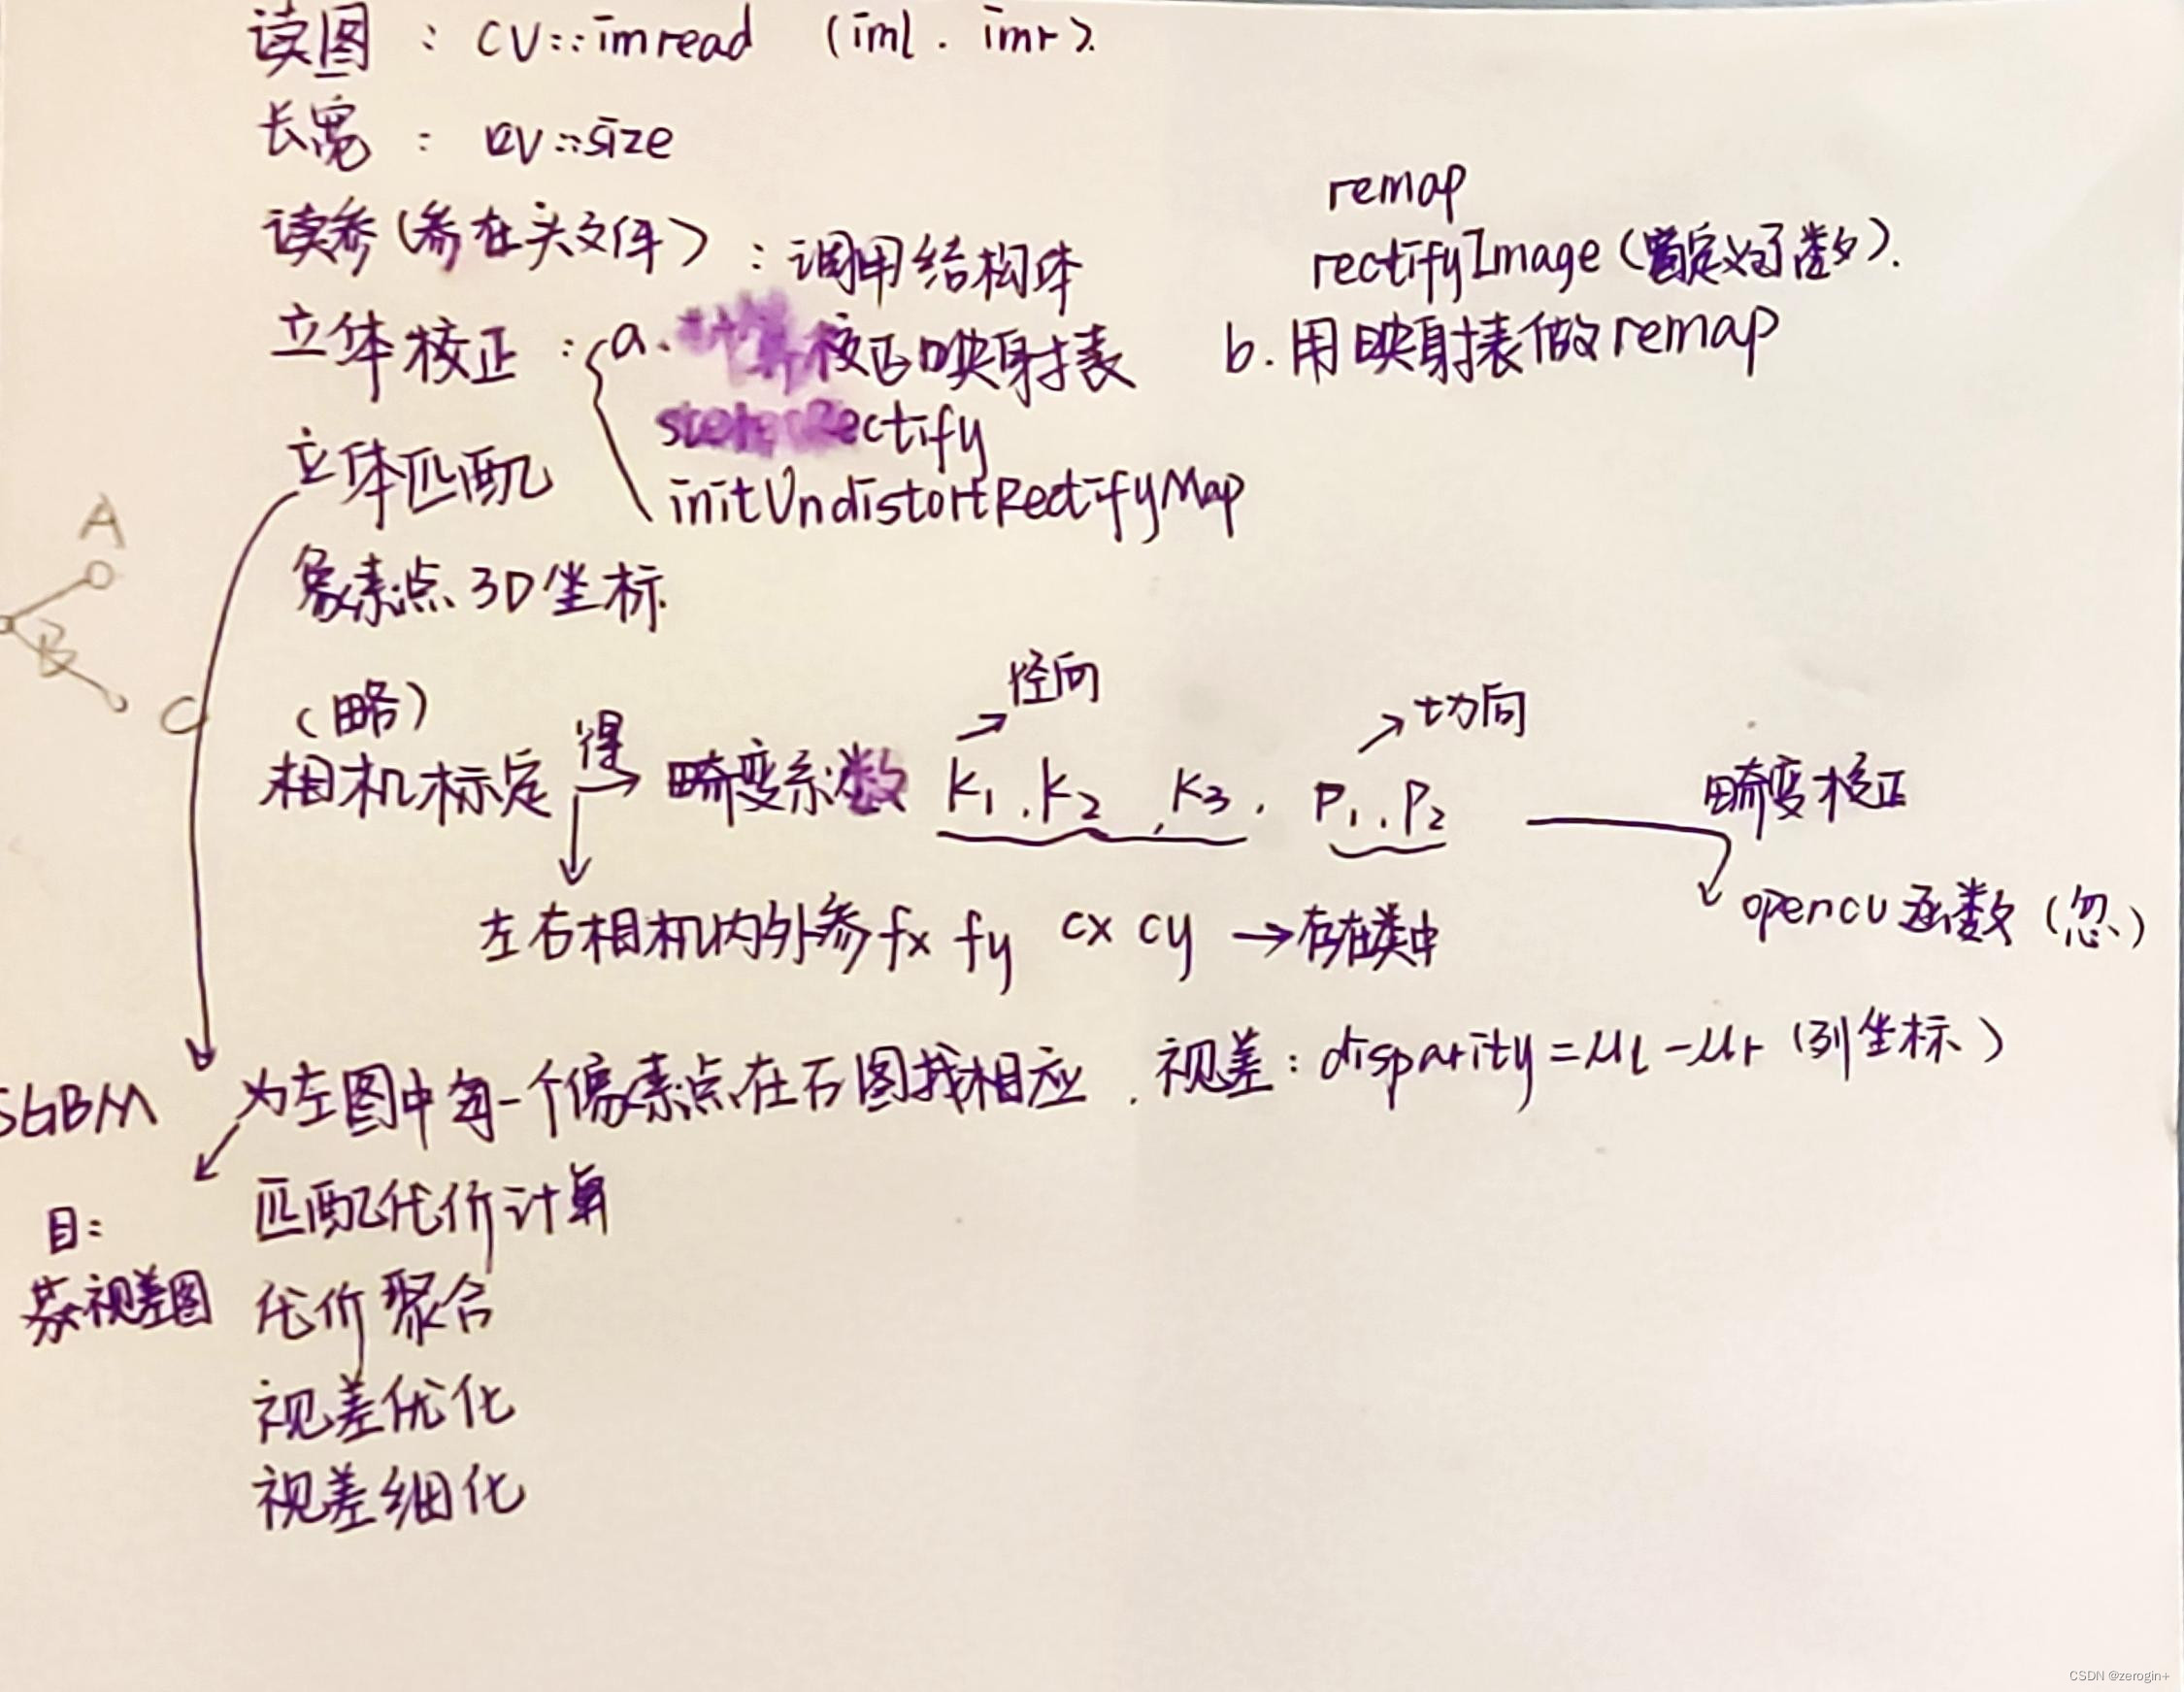 读图 : cv::imread (iml . imr).
长宽 : cv::size
读参(参在头文件) : 调用结构体
remap
rectifyImage (自定义函数).
立体校正 : a. 计算校正映射表
b. 用映射表做remap
stereoRectify
initUndistortRectifyMap
立体匹配
A
B
C
象素点3D坐标.
(略)
相机标定 得 → 畸变系数 K1 , K2 , K3 , P1 , P2
径向
切向
畸变校正
opencv函数 (忽)
左右相机内外参 fx fy cx cy → 存在类中
SGBM
为左图中每一个像素点在右图找相应 . 视差 : disparity = μl - μr (列坐标)
目:
获视差图
匹配代价计算
代价聚合
视差优化
视差细化
CSDN @zerogin+